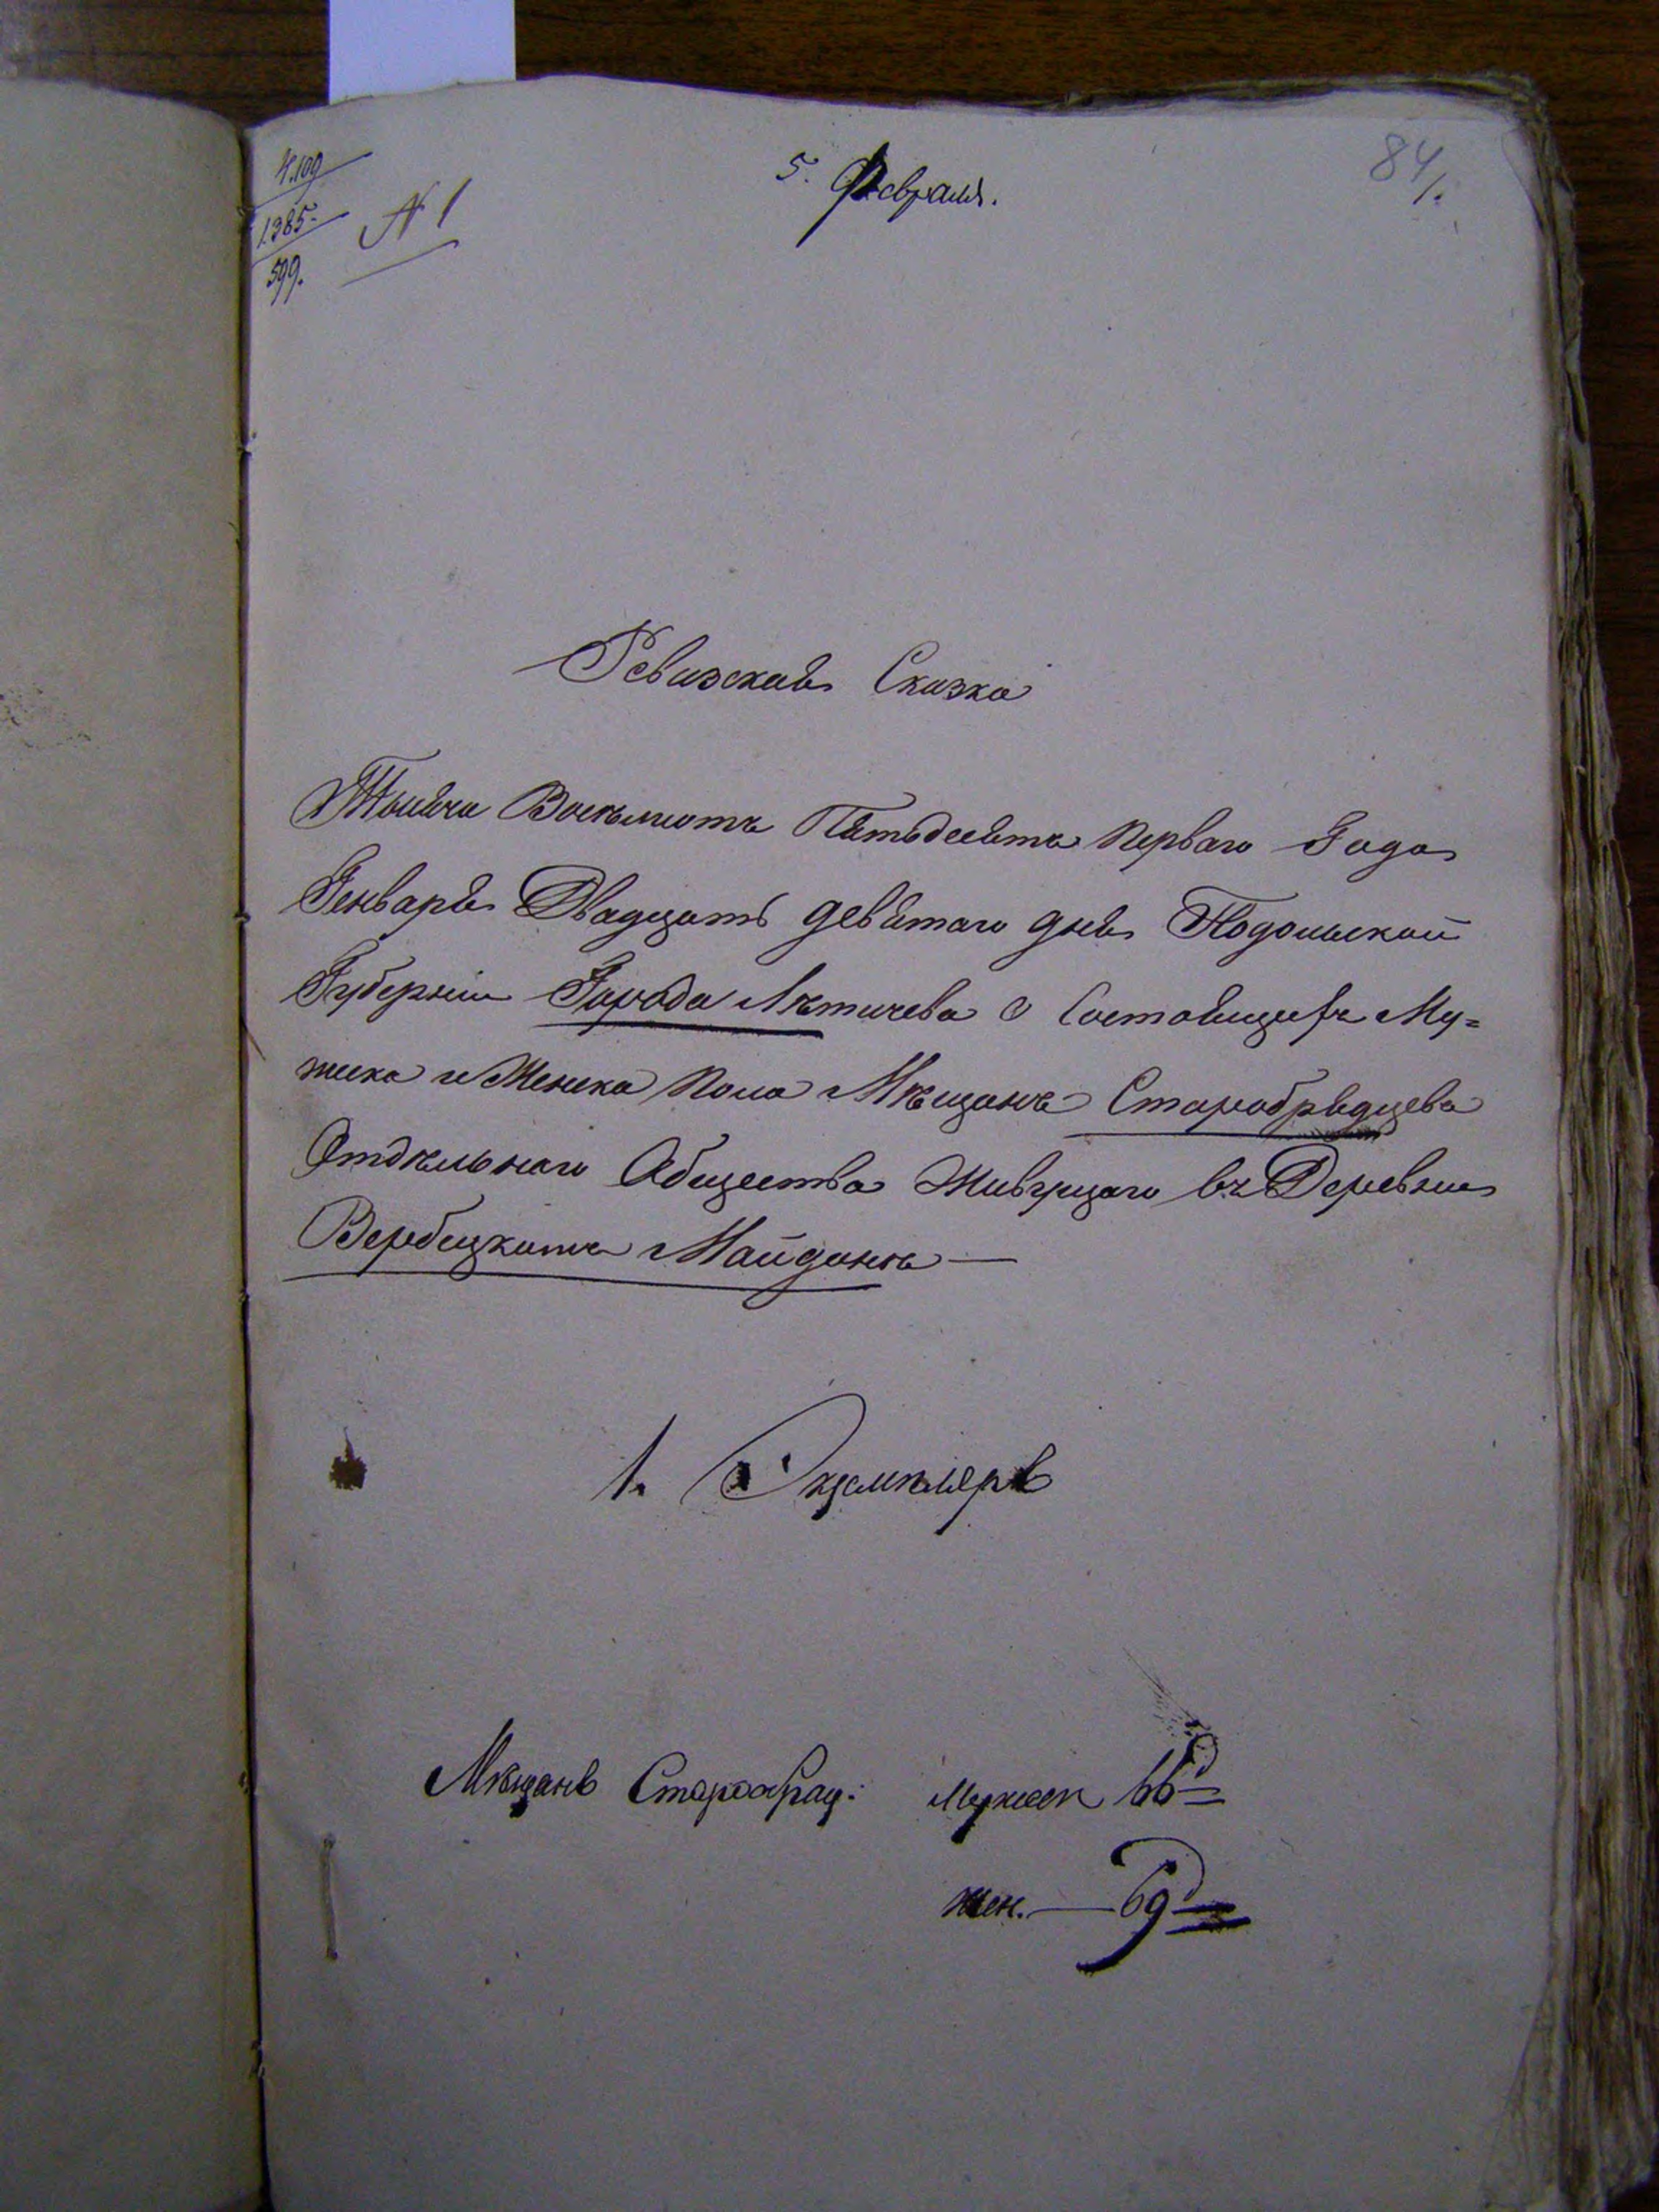 5. Февраля.
84
4.109
1.385.
599.
N 1
Ревизская Сказка
Тысяча Восемьсотъ Пятьдесятъ Перваго Года
Генваря Двадцать девятаго дня Подольской
Губернии Города Лѣтичева о Состоящихъ Му=
жска и Женска Пола Мѣщанъ Старобрядцевъ
Отдѣльнаго Общества Живущаго въ Деревни
Вербецкомъ Майданѣ —
1. Экземпляръ
Мѣщанъ Старообряд: мужеск 66
жен. — 69